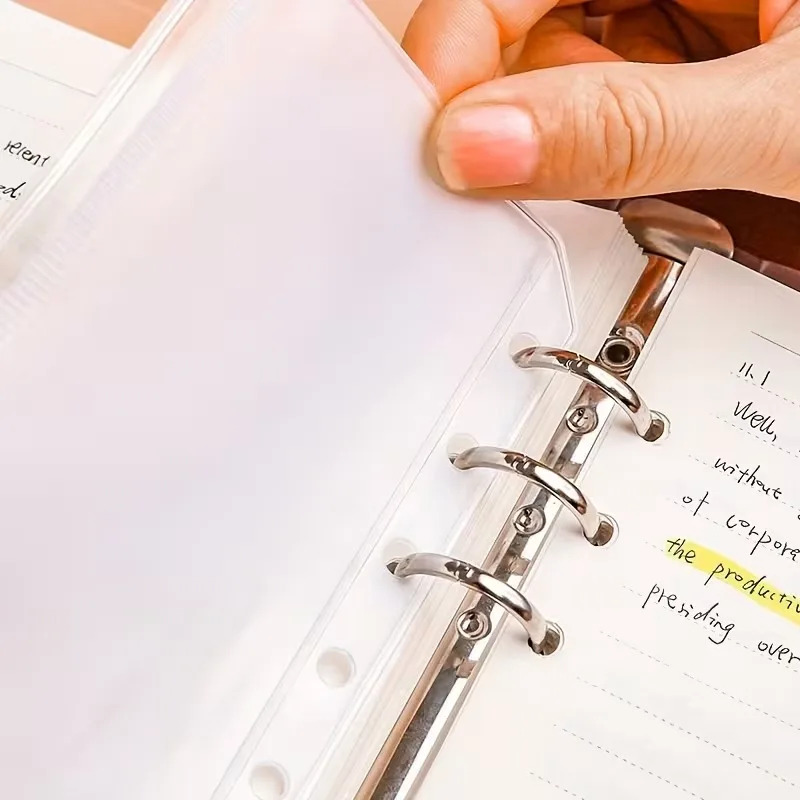 11.1
Well,
without
of corpora
the producti
presiding over